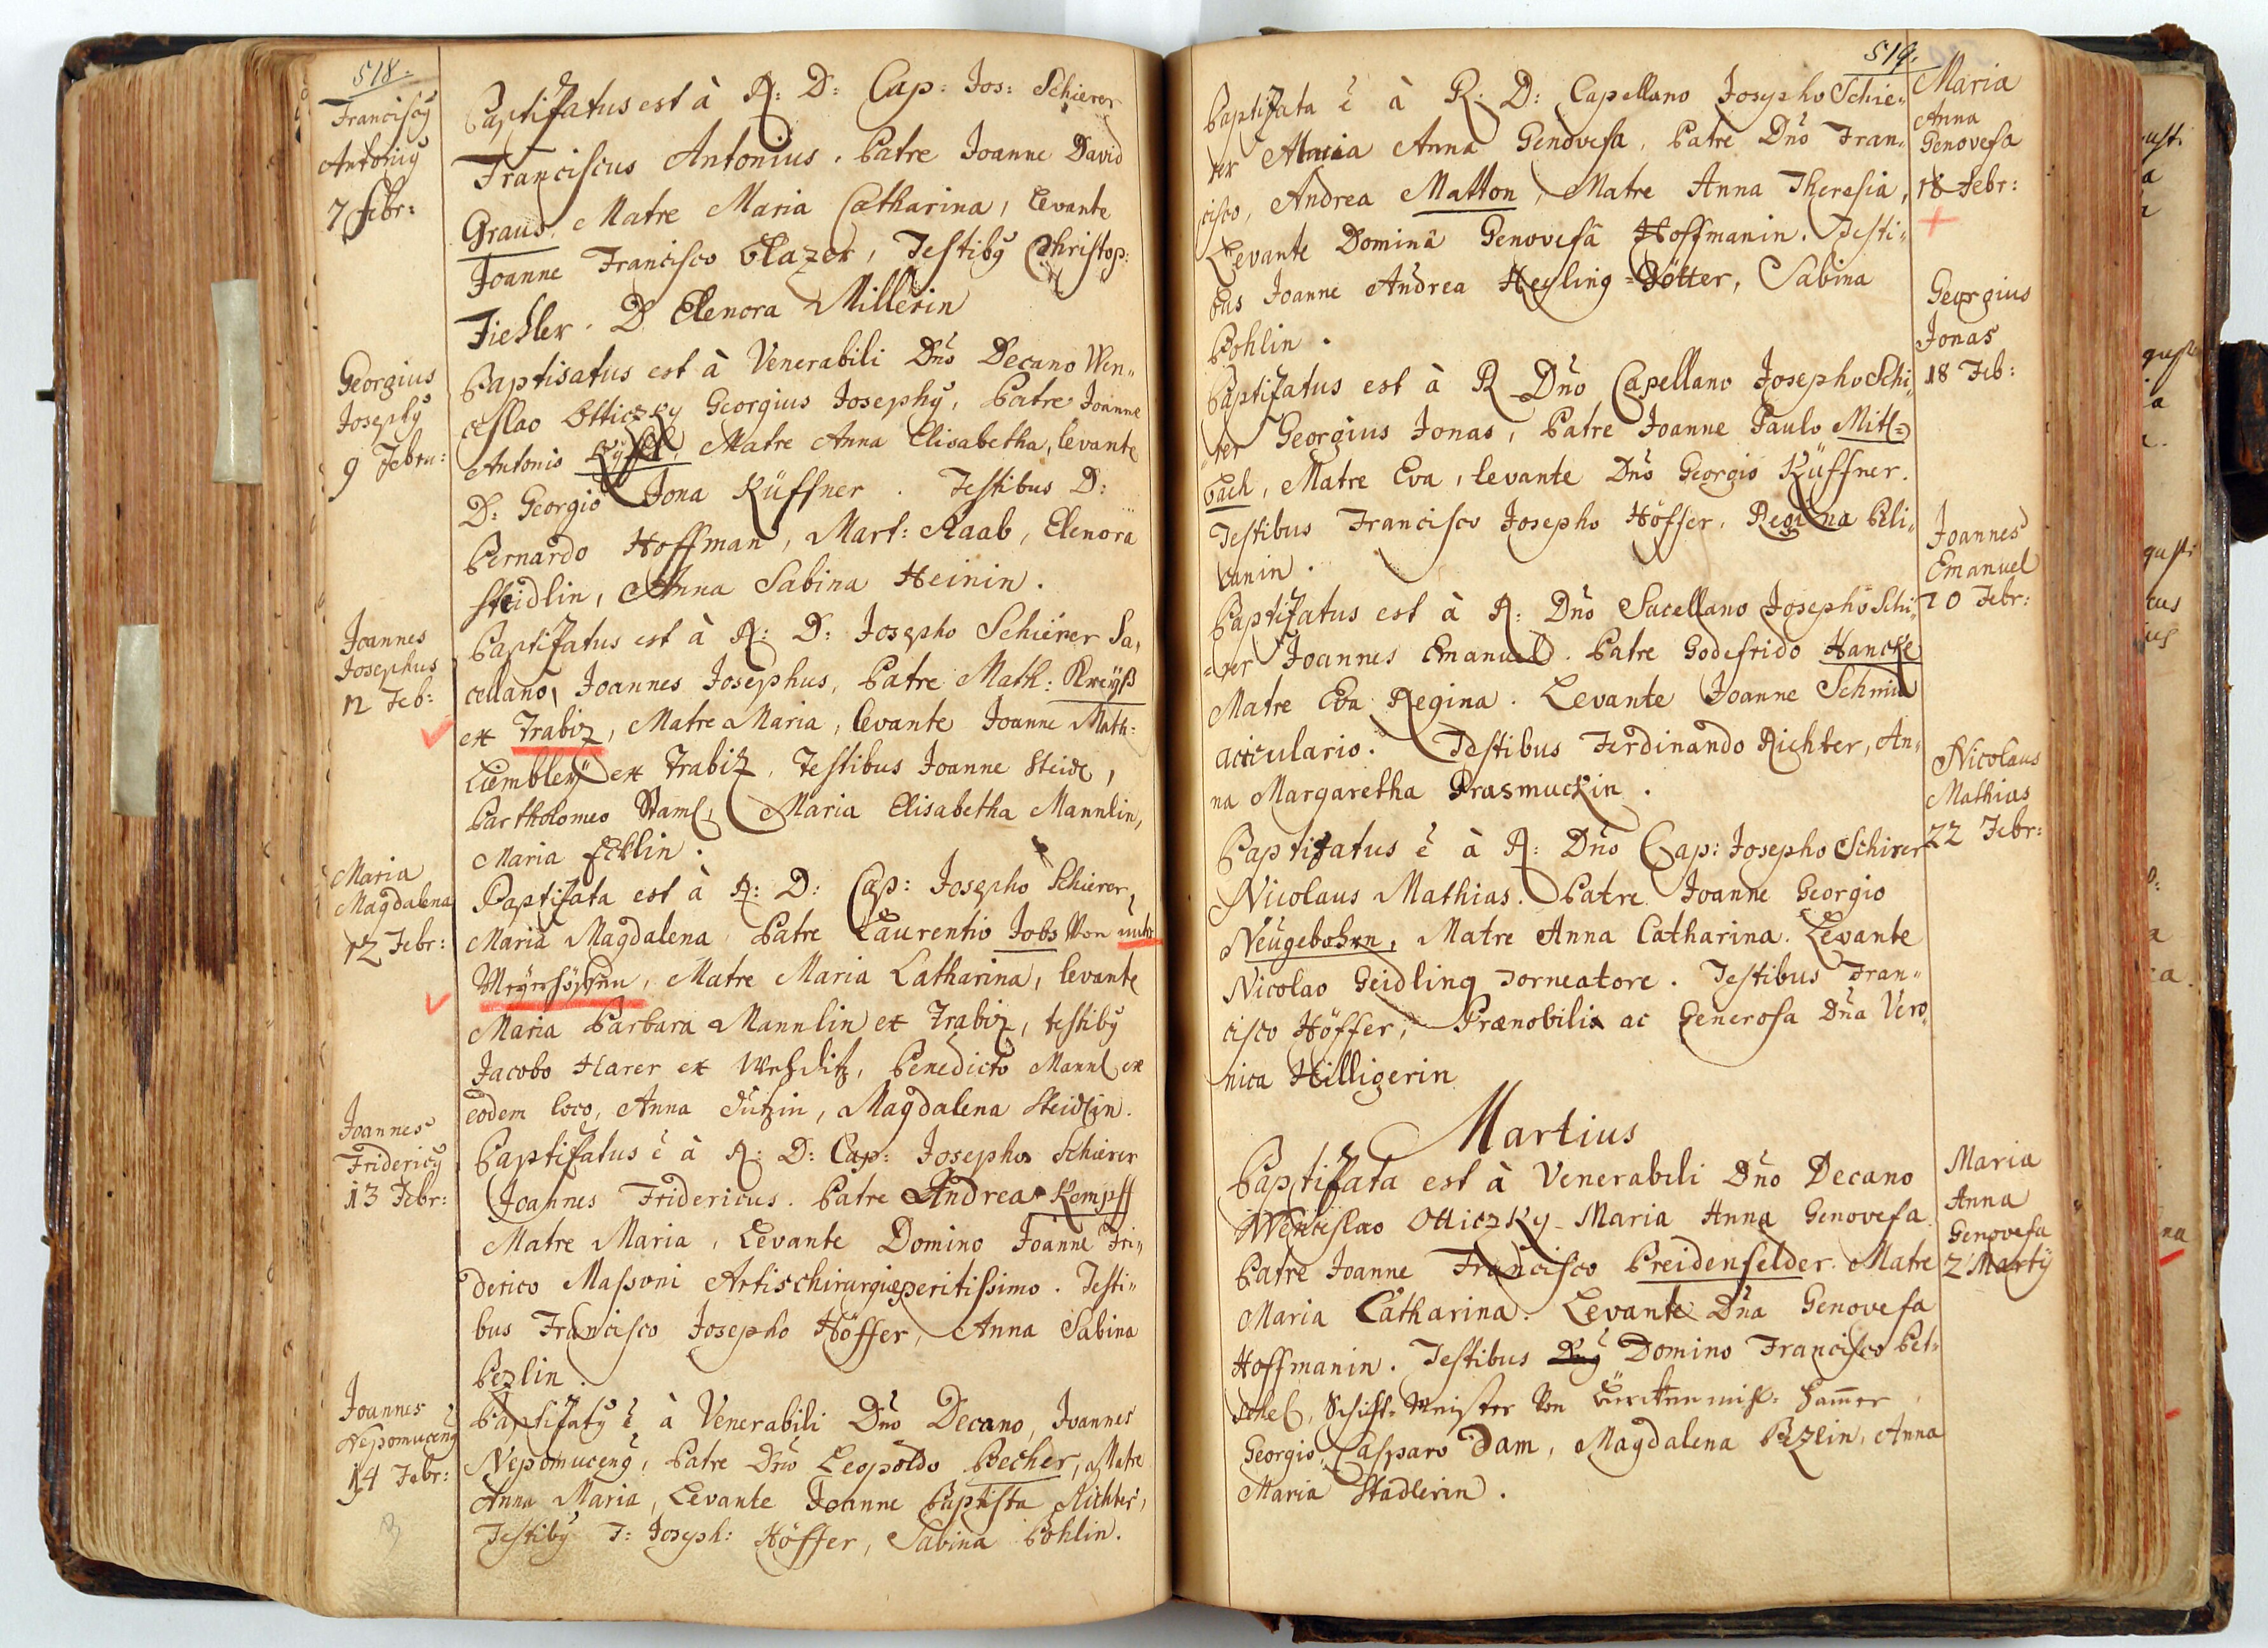 518.
Franciscꝰ
Antoniꝰ
7 febr:
Baptisatus est à R: D: Cap: Jos: Schierer
Franciscus Antonius. Patre Joanne David
Graus. Matre Maria Catharina, levante
Joanne Francisco Glazer, Testibꝰ Christop:
Fiehler. D Elenora Millerin
Georgius
Josephꝰ
9 Febru:
Baptisatus est à Venerabili Dno Decano Wen„
ceslao Otticzky Georgius Josephꝰ, Patre Joanne
Antonio Matre Anna Elisabetha, levante
D: Georgio Jona Küffner. Testibus D:
Bernardo Hoffman, Mart: Raab, Elenora
Steidlin, Anna Sabina Heinin.
Joannes
Josephus
12 Feb:
Baptisatus est à R: D: Josepho Schierer Sa,
cellano, Joannes Josephus, Patre Math: Kreÿß
ex Trabiz, Matre Maria, levante Joanne Math:
ex Trabiz, Testibus Joanne Steidl,
Bartholomeo Staml, Maria Elisabetha Mannlin,
Maria Ecklin.
Maria
Magdalena
12 Febr:
Baptisata est à R: D: Cap: Josepho Schierer,
Maria Magdalena Patre Laurentio Jobs Von
Matre Maria Catharina, levante
Maria Barbara Mannlin ex Trabiz, testibꝰ
Jacobo Harer ex Weßlitz, Benedicto Mannl ex
eodem loco, Anna Magdalena Steidlin.
Joannes
Fridericꝰ
13 Febr:
Baptisatus ē à R: D: Cap: Josepho Schierer
Joannes Fridericus. Patre Andrea Kempff
Matre Maria, Levante Domino Joanne Fri„
derico Massoni Artis chirurgiæ peritissimo. Testi„
bus Francisco Josepho Höffer, Anna Sabina
Pezlin.
Joannes
Nepomucenꝰ
14 Febr:
Baptisatꝰ ē à Venerabili Dno Decano, Joannes
Nepomucenꝰ, Patre Dno Leopoldo Becher, Matre
Anna Maria, Levante Joanne Baptista Richter,
Testibꝰ F: Joseph: Höffer, Sabina Pohlin.
519.
Baptisata ē à R: D: Capellano Josepho Schie„
rer Maria Anna Genovefa, Patre Dno Fran„
cisco, Andrea Matton, Matre Anna Theresia,
Levante Dominâ Genovefâ Hoffmanin. Testi„
bus Joanne Andrea Heyling=Dötter, Sabina
Pohlin.
Maria
Anna
Genovefa
18 Febr:
Baptisatus est à R Dno Capellano Josepho Schi„
„rer Georgius Jonas, Patre Joanne Paulo Mitl=
bach, Matre Eva, levante Dno Georgio Küffner.
Testibus Francisco Josepho Höffer, Regina Peli„
canin.
Georgius
Jonas
18 Feb:
Baptisatus est à R: Dno Sacellano Josepho Schi„
=rer Joannes Emanuel. Patre Godefrido Hancke
Matre Eva Regina. Levante Joanne Schmid
aciculario. Testibus Ferdinando Richter, An„
na Margaretha Prasmuckin.
Joannes
Emanuel
20 Febr:
Baptisatus ē à R: Dno Cap: Josepho Schirer
Nicolaus Mathias. Patre Joanne Georgio
Neugebohrn, Matre Anna Catharina. Levante
Nicolao Geidling Torneatore. Testibus Fran„
cisco Höffer, Prænobilis ac Generosa Dna Vero„
nica Hilligerin
Nicolaus
Mathias
22 Febr:
Martius
Baptisata est à Venerabili Dno Decano
Wenceslao Otticzky Maria Anna Genovefa
Patre Joanne Francisco Breidenfelder. Matre
Maria Catharina. Levante Dna Genovefa
Hoffmanin. Testibus Domino Francisco Pet„
schel, Schicht-Meister Von
Georgio, Casparo Dam, Magdalena Pezlin, Anna
Maria Stadlerin.
Maria
Anna
Genovefa
2 Martÿ